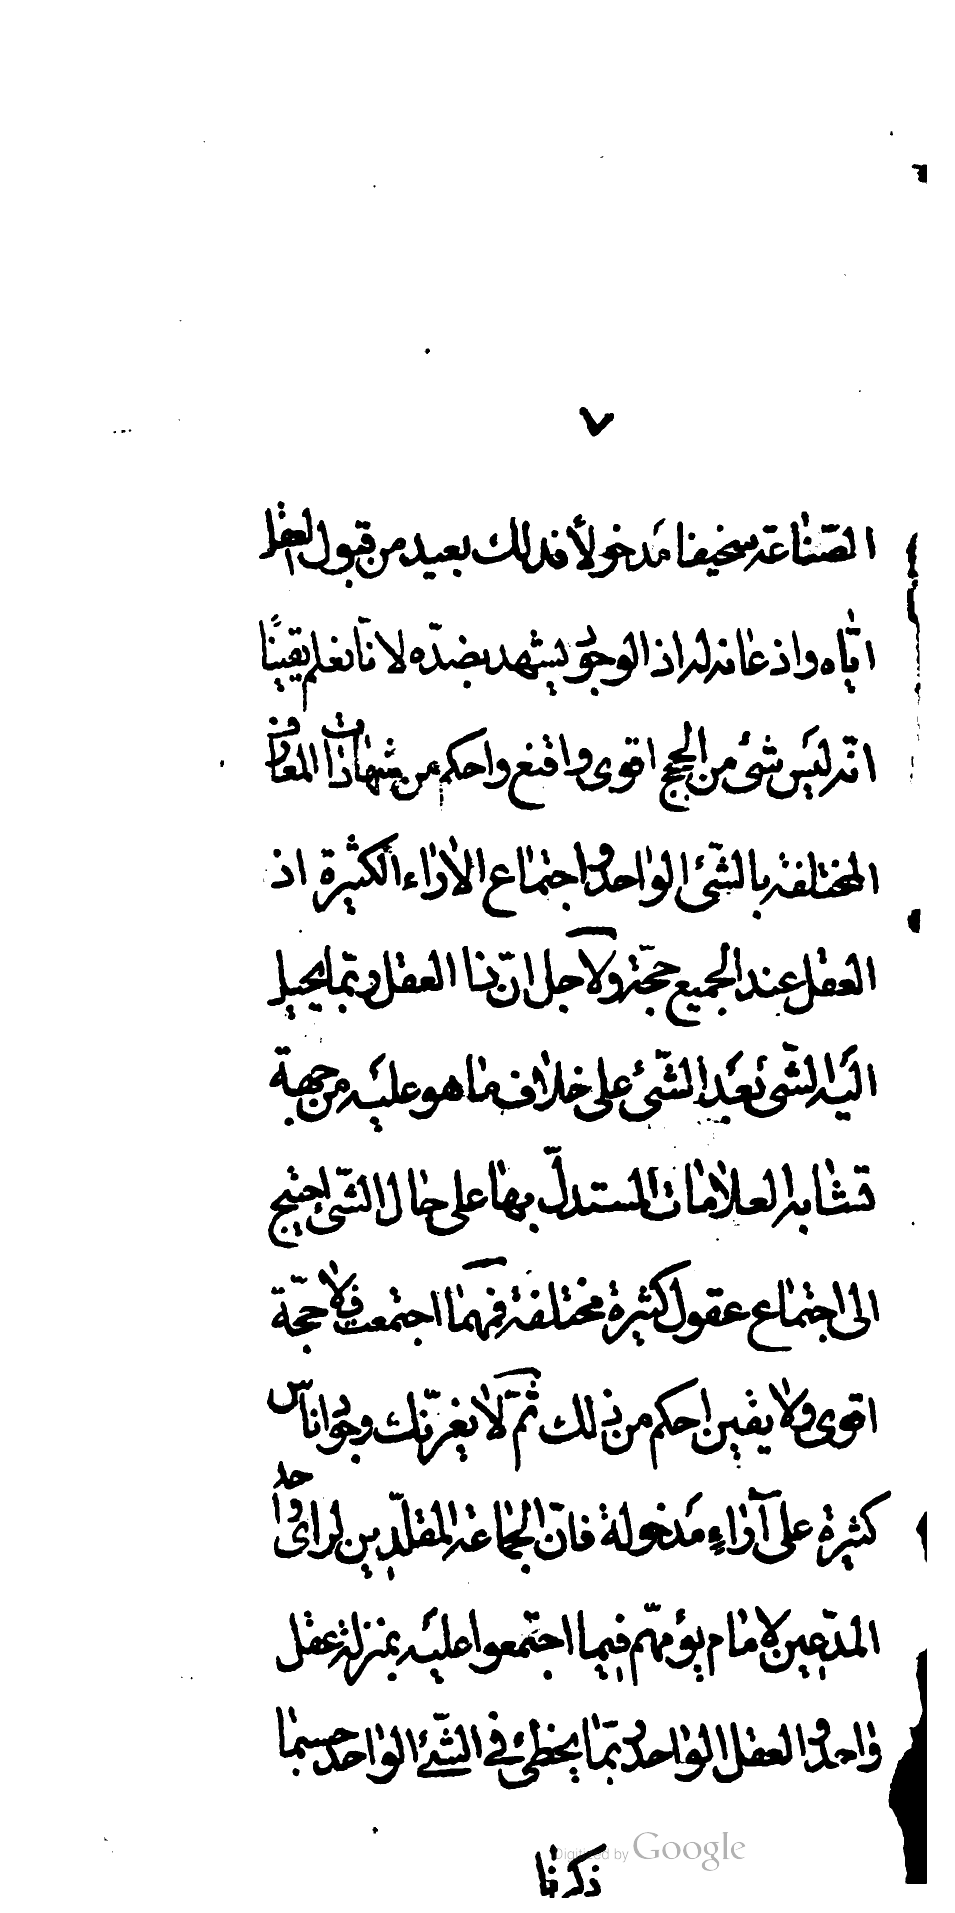 ٧
الصّناعة سخيفا مدخولاً فذلك بعيد من قبول العقل
ايّاه واذعانه له اذ الوجود يشهد بضدّه لانّا نعلم يقينًا
انّه ليس شئ من الحجج اقوى وانفع واحكم من شهادات المعارف
المختلفة بالشّئ الواحد واجتماع الاراء الكثيرة اذ
العقل عند الجميع حجّة ولاجل انّ ذا العقل ربّما يخيل
اليه الشّئ بعد الشّئ على خلاف ما هو عليه من جهة
تشابه العلامات المستدلّ بها على حال الشّئ احتيج
الى اجتماع عقول كثيرة مختلفة فمهما اجتمعت فلا حجّة
اقوى ولا يقين احكم من ذلك ثمّ لا يغرّنّك وجود اناس
كثيرة على آراء مدخولة فانّ الجماعة المقلّدين لراى واحد
المدّعين لامام يؤمّهم فيما اجتمعوا عليه بمنزلة عقل
واحد والعقل الواحد ربّما يخطئ في الشّئ الواحد حسبما
ذكرنا
Digitized by Google